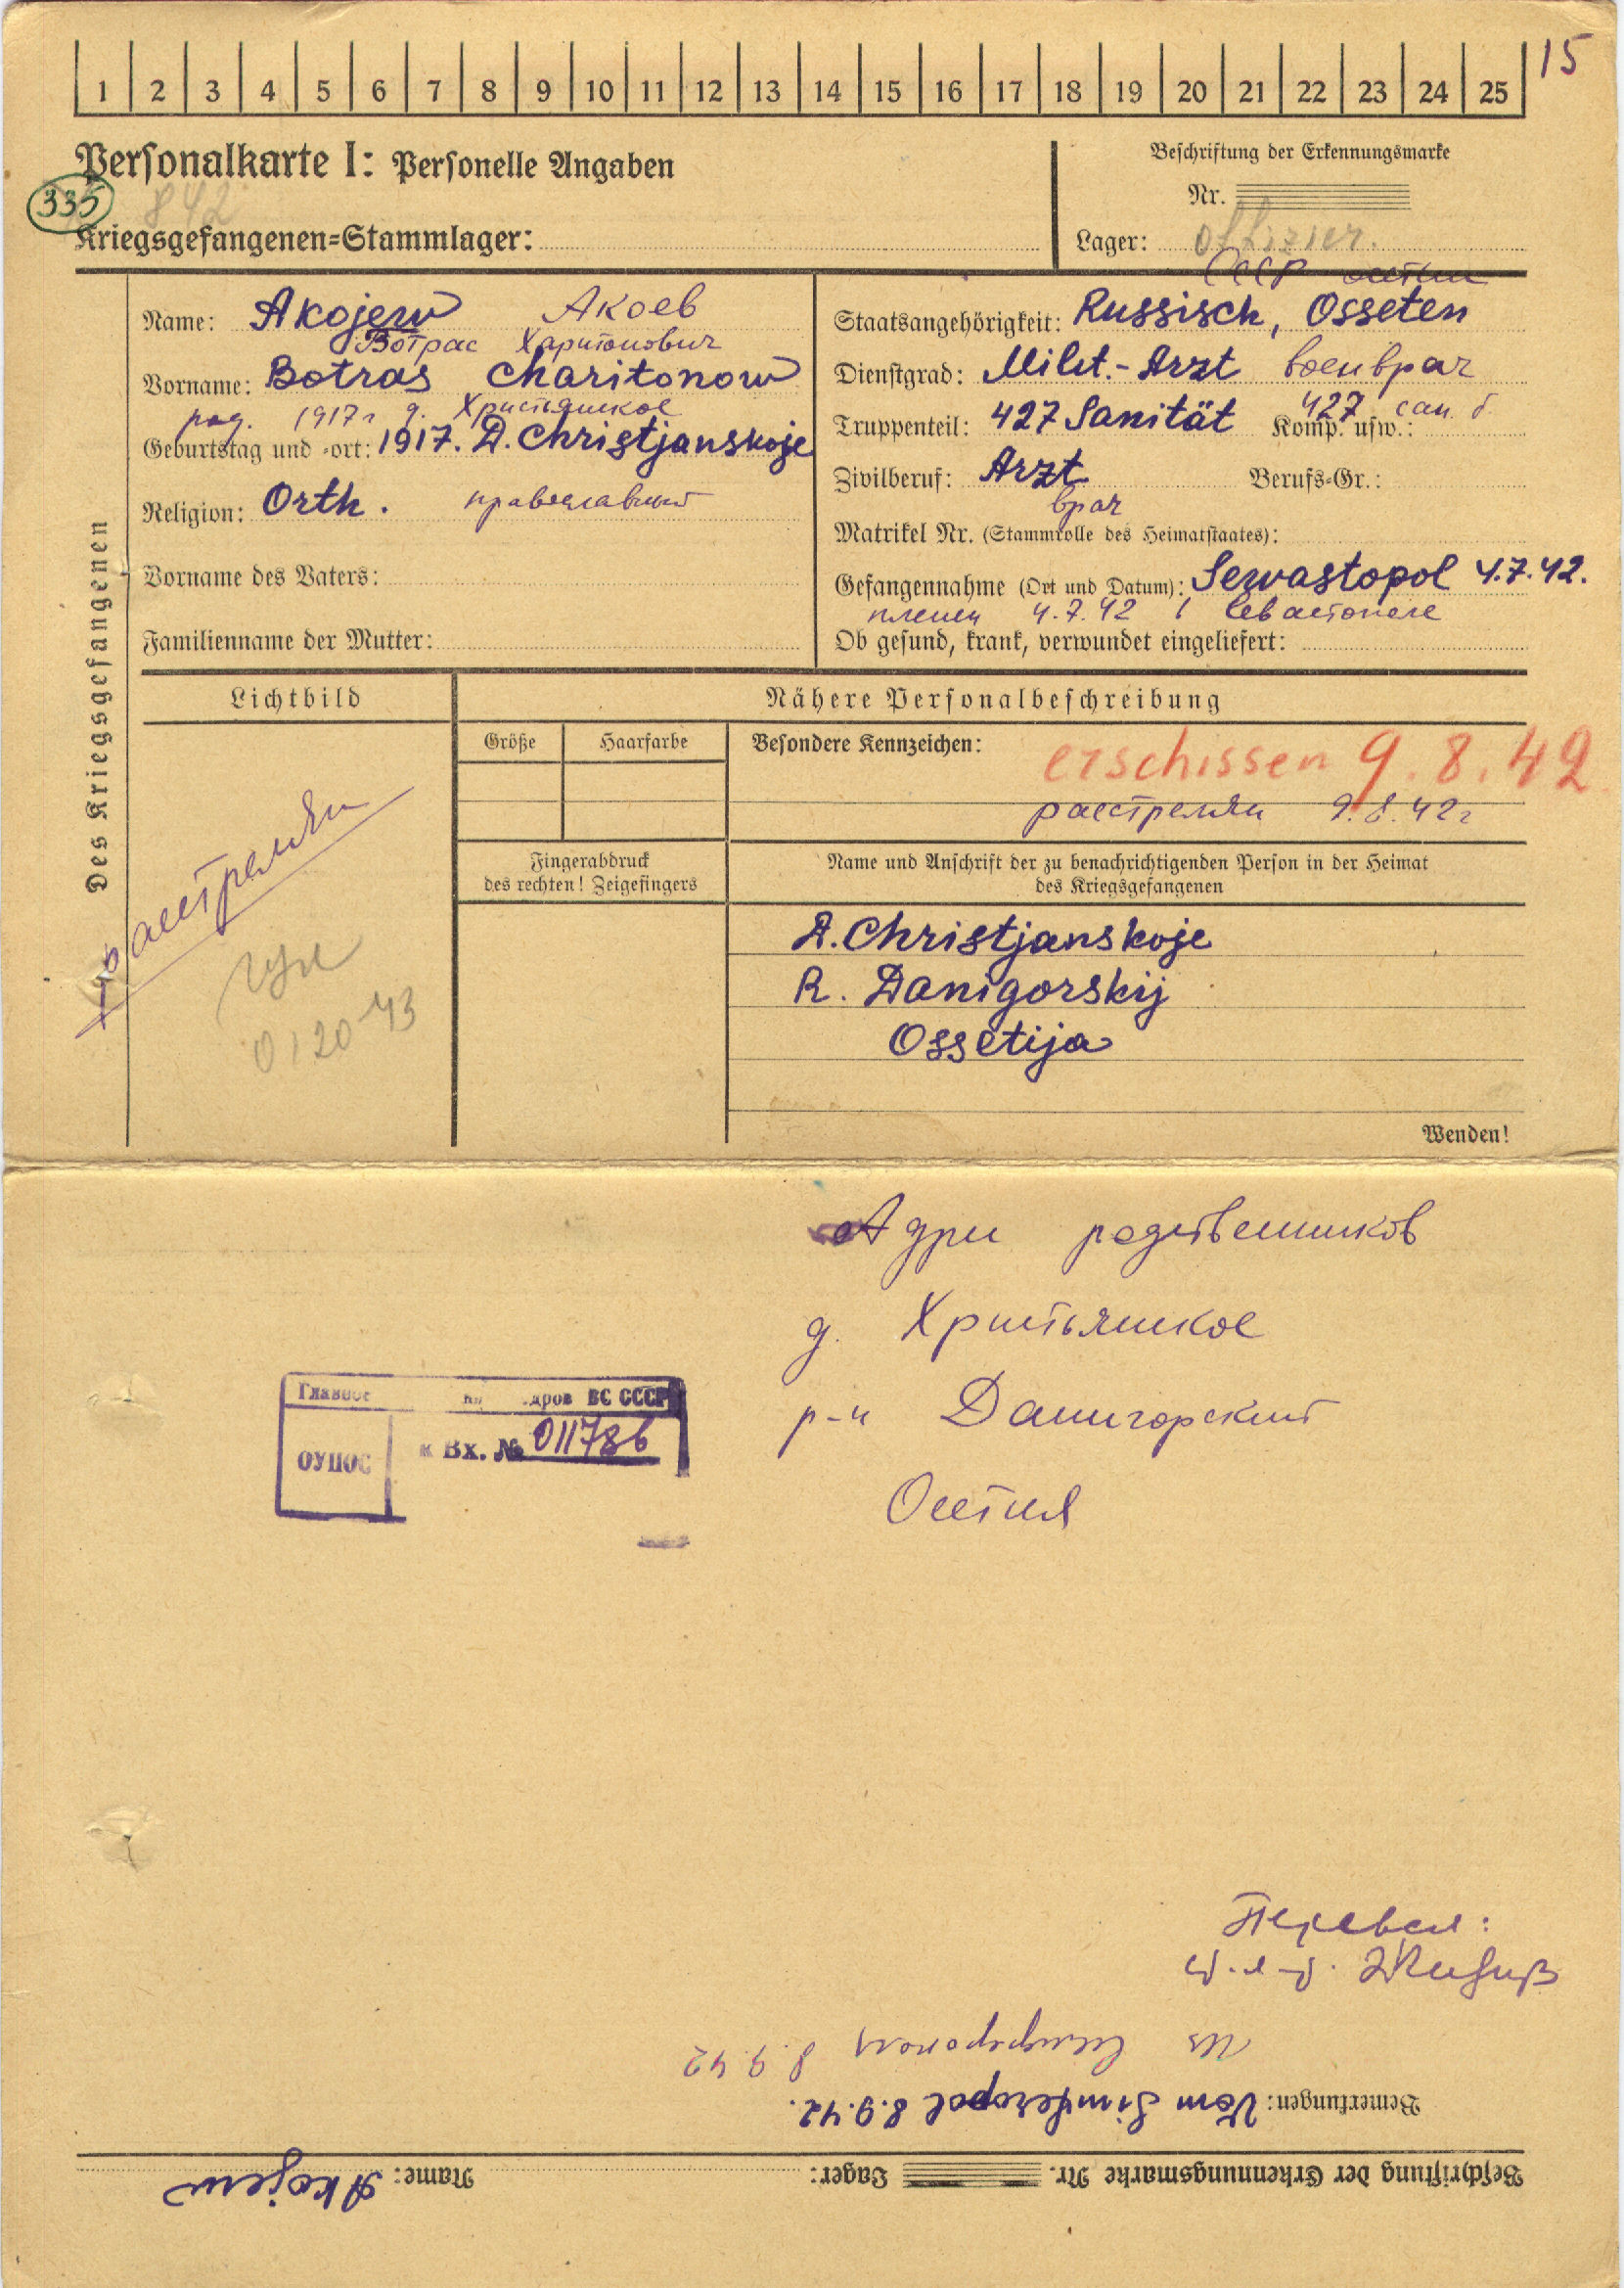 1 2 3 4 5 6 7 8 9 10 11 12 13 14 15 16 17 18 19 20 21 22 23 24 25
15
Personalkarte I: Personelle Angaben
Beschriftung der Erkennungsmarke
335
842
Nr.
Kriegsgefangenen=Stammlager:
Lager: offizier.
СССР осетин
Name: Akojew Акоев
Staatsangehörigkeit: Russisch, Osseten
Вотрас Харитонович
Vorname: Botras Charitonow
Dienstgrad: Milit.-Arzt военврач
род. 1917г д. Христьянское
Geburtstag und -ort: 1917. D. Christjanskoje
427 сан. б
Truppenteil: 427 Sanität Komp. usw.:
Zivilberuf: Arzt Berufs=Gr.:
врач
Religion: Orth. православный
Matrikel Nr. (Stammrolle des Heimatstaates):
Vorname des Vaters:
Gefangennahme (Ort und Datum): Sewastopol 4.7.42.
пленен 4.7.42 в Севастополе
Familienname der Mutter:
Ob gesund, krank, verwundet eingeliefert:
Des Kriegsgefangenen
Lichtbild
Nähere Personalbeschreibung
Größe
Haarfarbe
Besondere Kennzeichen: erschissen 9.8.42
расстрелян 9.8.42г
расстрелян
Fingerabdruck
des rechten! Zeigefingers
Name und Anschrift der zu benachrichtigenden Person in der Heimat
des Kriegsgefangenen
D. Christjanskoje
R. Danigorskij
Ossetija
0120-43
Wenden!
Адрес родственников
д. Христьянское
р-н Данигорский
Осетия
Главное ВС СССР
ОУПОС
к Вх. № 011786
Перевел:
Из Симферополя 8.9.42
Bemerkungen: Vom Simferopol 8.9.42.
Beschriftung der Erkennungsmarke Nr. Lager: Name: Akojew